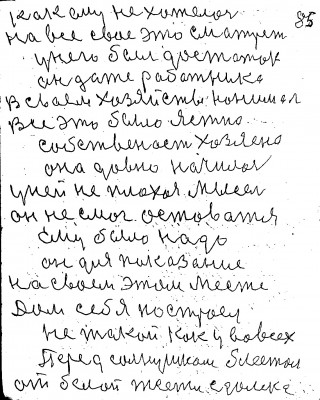 85
как ому не хотелос
на все свое это сматрет
у него бали достаток
он даже работника
в своем хозяйстве нанимал
все это было ястно
собственост хозяено
она довно начилос
у ней не плохоя мысел
он не смог остоватя
ему было надо
он для показание
на своем этом месте
Дом себя построел
не такой как у вовсех
Перед солнушком блестол
от белой жести сдалека